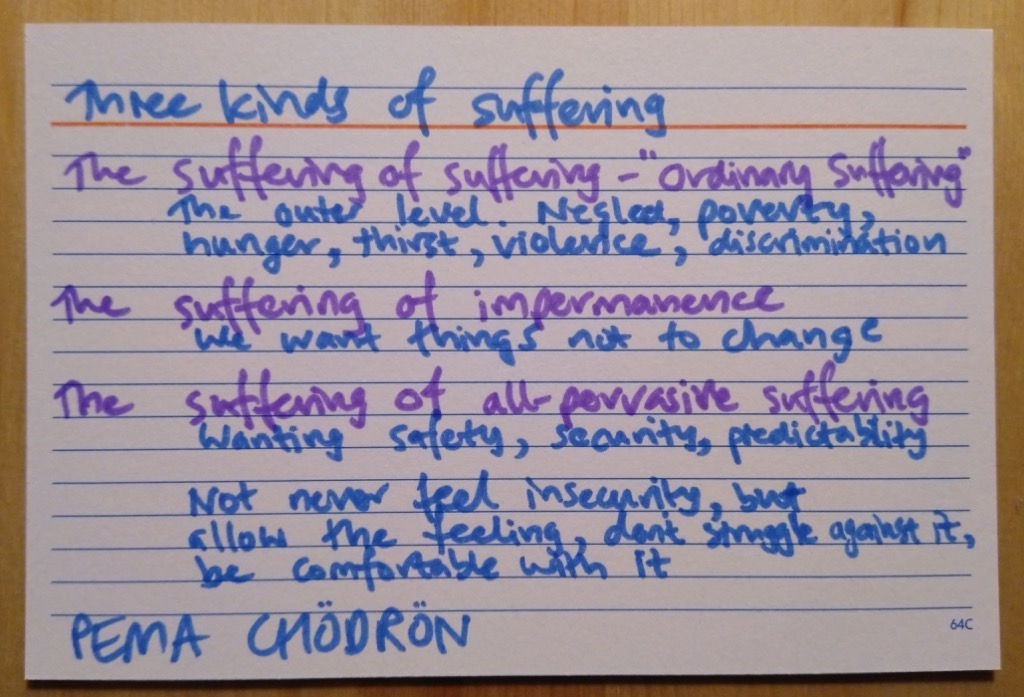 Three kinds of suffering
The suffering of suffering - "ordinary suffering"
The outer level. Neglect, poverty,
hunger, thirst, violence, discrimination
The suffering of impermanence
We want things not to change
The suffering of all-pervasive suffering
Wanting safety, security, predictability
Not never feel insecurity, but
allow the feeling, dont struggle against it,
be comfortable with it
PEMA CHÖDRÖN
64C